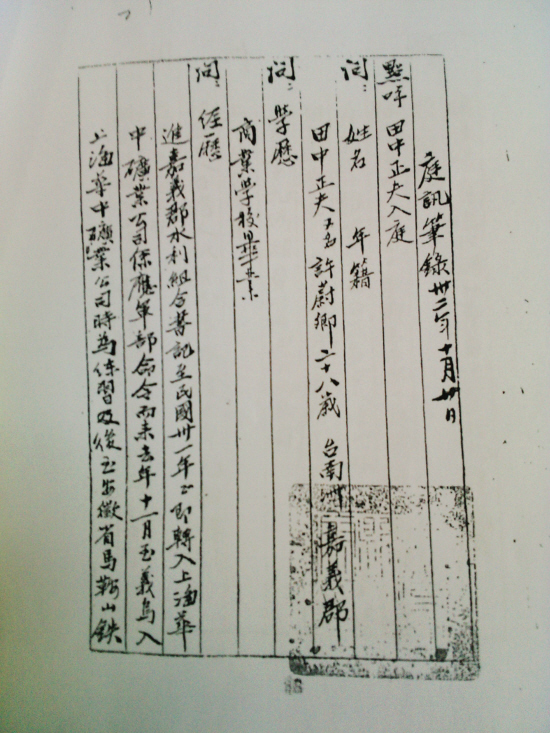 庭訊筆錄 卅二年十月廿日
點呼 田中正夫入庭
問：姓名 年籍
田中正夫 又名許蔚鄉 二十八歲 台南州嘉義郡
問：學歷
商業學校畢業
問：經歷
進嘉義郡水利組合書記至民國卅一年止即轉入上海華
中礦業公司係應軍部命令而來去年十一月至義烏入
上海華中礦業公司時為練習及後至安徽省馬鞍山鉄